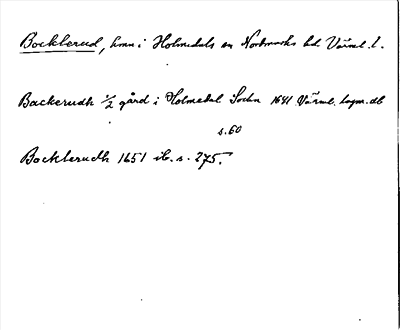 Bockterud, hmn i Holmedals sn Nordmarks hd. Värml. l.
Backerudh 1/2 gård i Holmedal Sochn 1641 Värml. lagm. db
s. 60
Bockterudh 1651 ib. s. 275.